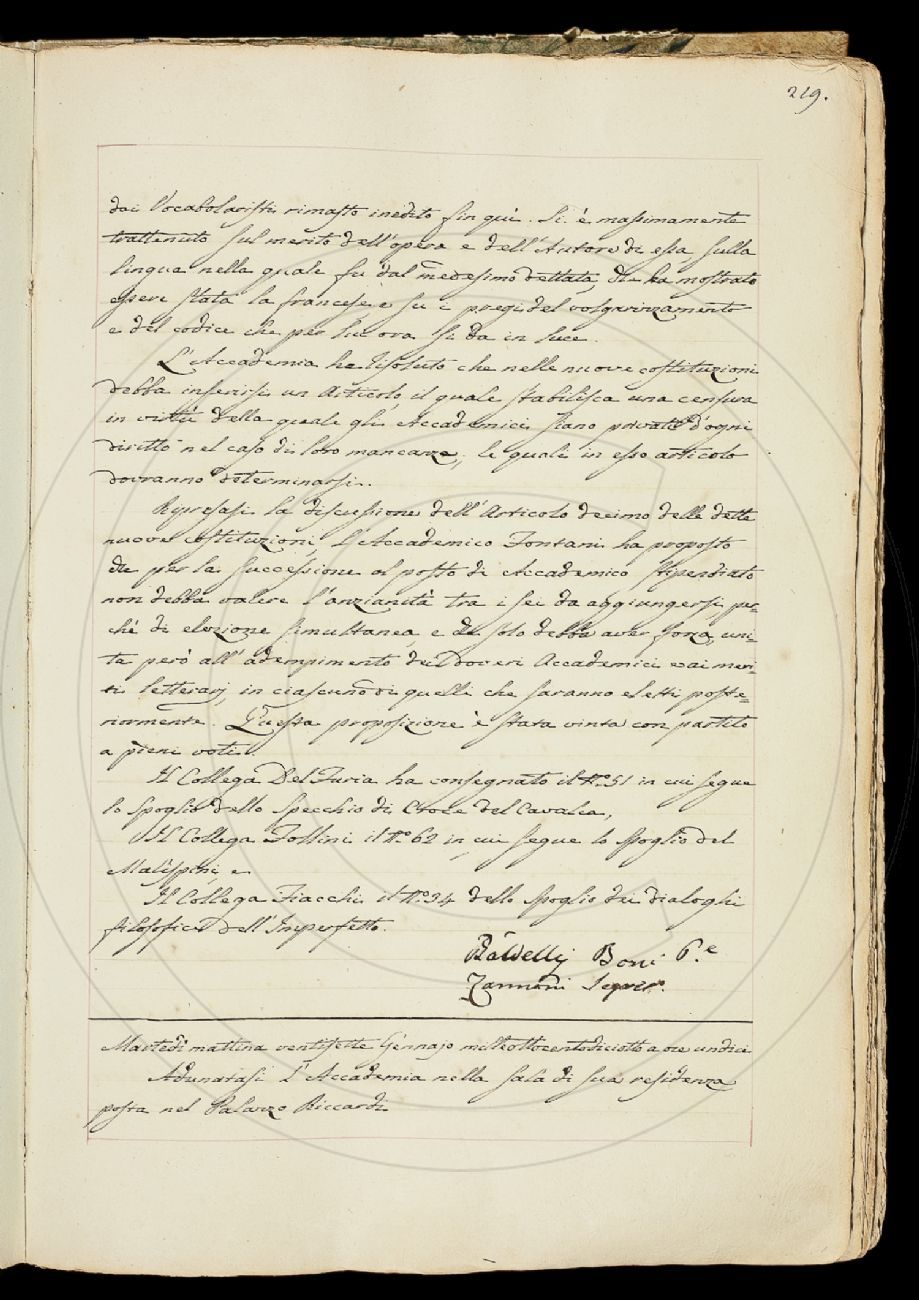 219.
dai Vocabolaristi rimasto inedito fin quì. Si è massimamente
trattenuto sul merito dell'opera e dell'Autore di essa sulla
lingua nella quale fu dal medesimo dettata, che ha mostrato
essere stata la francese, e su i pregi del volgarizzamento
e del codice che per lui ora si dà in luce.
L'Accademia ha risoluto che nelle nuove costituzioni
debba inserirsi un Articolo, il quale stabilisca una censura
in virtù della quale gli Accademici siano privati d'ogni
diritto nel caso di loro mancanze, le quali in esso articolo
dovranno determinarsi.
Ripresasi la discussione dell'Articolo decimo delle dette
nuove costituzioni, l'Accademico Fontani ha proposto
che per la successione al posto di Accademico stipendiato
non debba valere l'anzianità tra i sei da aggiungersi, per-
chè di elezione simultanea, e che solo debba aver forza, uni-
ta però all'adempimento dei doveri Accademici e ai meri-
ti letterarj, in ciascuno di quelli che saranno eletti poste-
riormente. Questa proposizione è stata vinta con partito
a pieni voti.
Il Collega Del Furia ha consegnato il N.º 51 in cui segue
lo Spoglio dello Specchio di Croce del Cavalca,
Il Collega Follini il N.º 62 in cui segue lo spoglio del
Malispini, e
Il Collega Fiacchi il N.º 34 dello spoglio dei dialoghi
filosofici dell'Imperfetto.
Baldelli Boni P.e
Zannoni Segret.
Martedì mattina ventisette Gennajo milleottocentodiciotto a ore undici
Adunatasi l'Accademia nella sala di sua residenza
posta nel Palazzo Riccardi